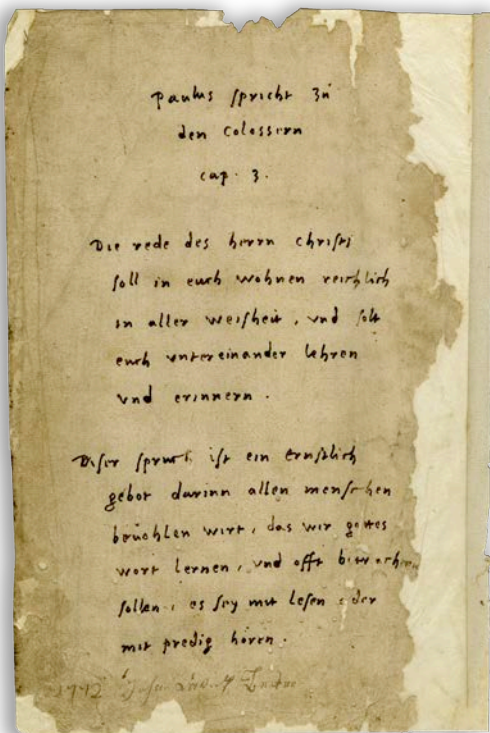 Paulus spricht zu
den Colossern
cap. 3.
Die rede des herrn christi
soll in euch wohnen reichlich
in aller weisheit, vnd solt
euch vntereinander lehren
vnd erinnern.
Diser spruch ist ein ernstlich
gebot darinn allen menschen
beuohlen wirt, das wir gottes
wort lernen, vnd offt betrachten
sollen, es sey mit lesen oder
mit predig hören.